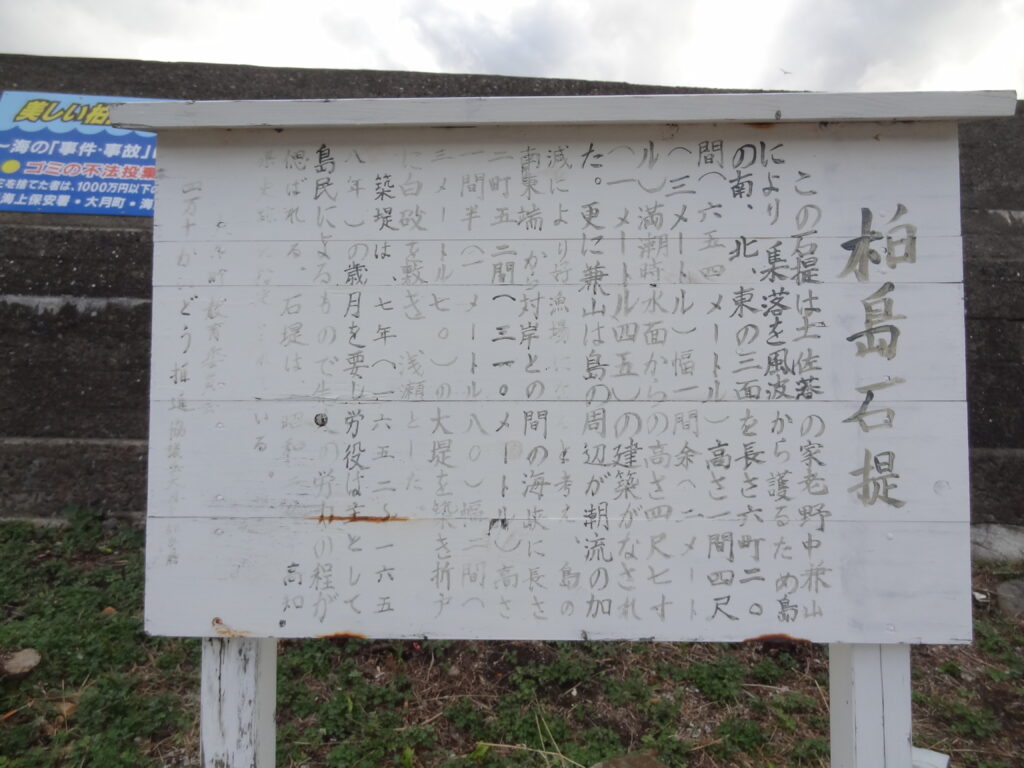 柏島石堤
この石堤は土佐藩の家老野中兼山
により集落を風波から護るため島
の南、北、東の三面を長さ六町二〇
間(六五四メートル)高さ一間四尺
(三メートル)幅一間余(二メート
ル)満潮時水面からの高さ四尺七寸
(一メートル四五)の建築がなされ
た。更に兼山は島の周辺が潮流の加
減により好漁場に と考え、島の
南東端から対岸との間の海峡に長さ
二町五二間(三一〇メートル)高さ
一間半(一メートル八〇)幅二間(
三メートル七〇)の大堤を築き折戸
に白破を敷き浅瀬とした。
築堤は七年(一六五二〜一六五
八年)の歳月を要し労役は主として
島民によるもので の労力の程が
偲ばれる。石堤は、昭和 高知
いる。
教育委員会
四万十かいどう推進協議会
美しい柏
〜海の「事件・事故」は
ゴミの不法投棄
ミを捨てた者は、1000万円以下の
海上保安署・大月町・海